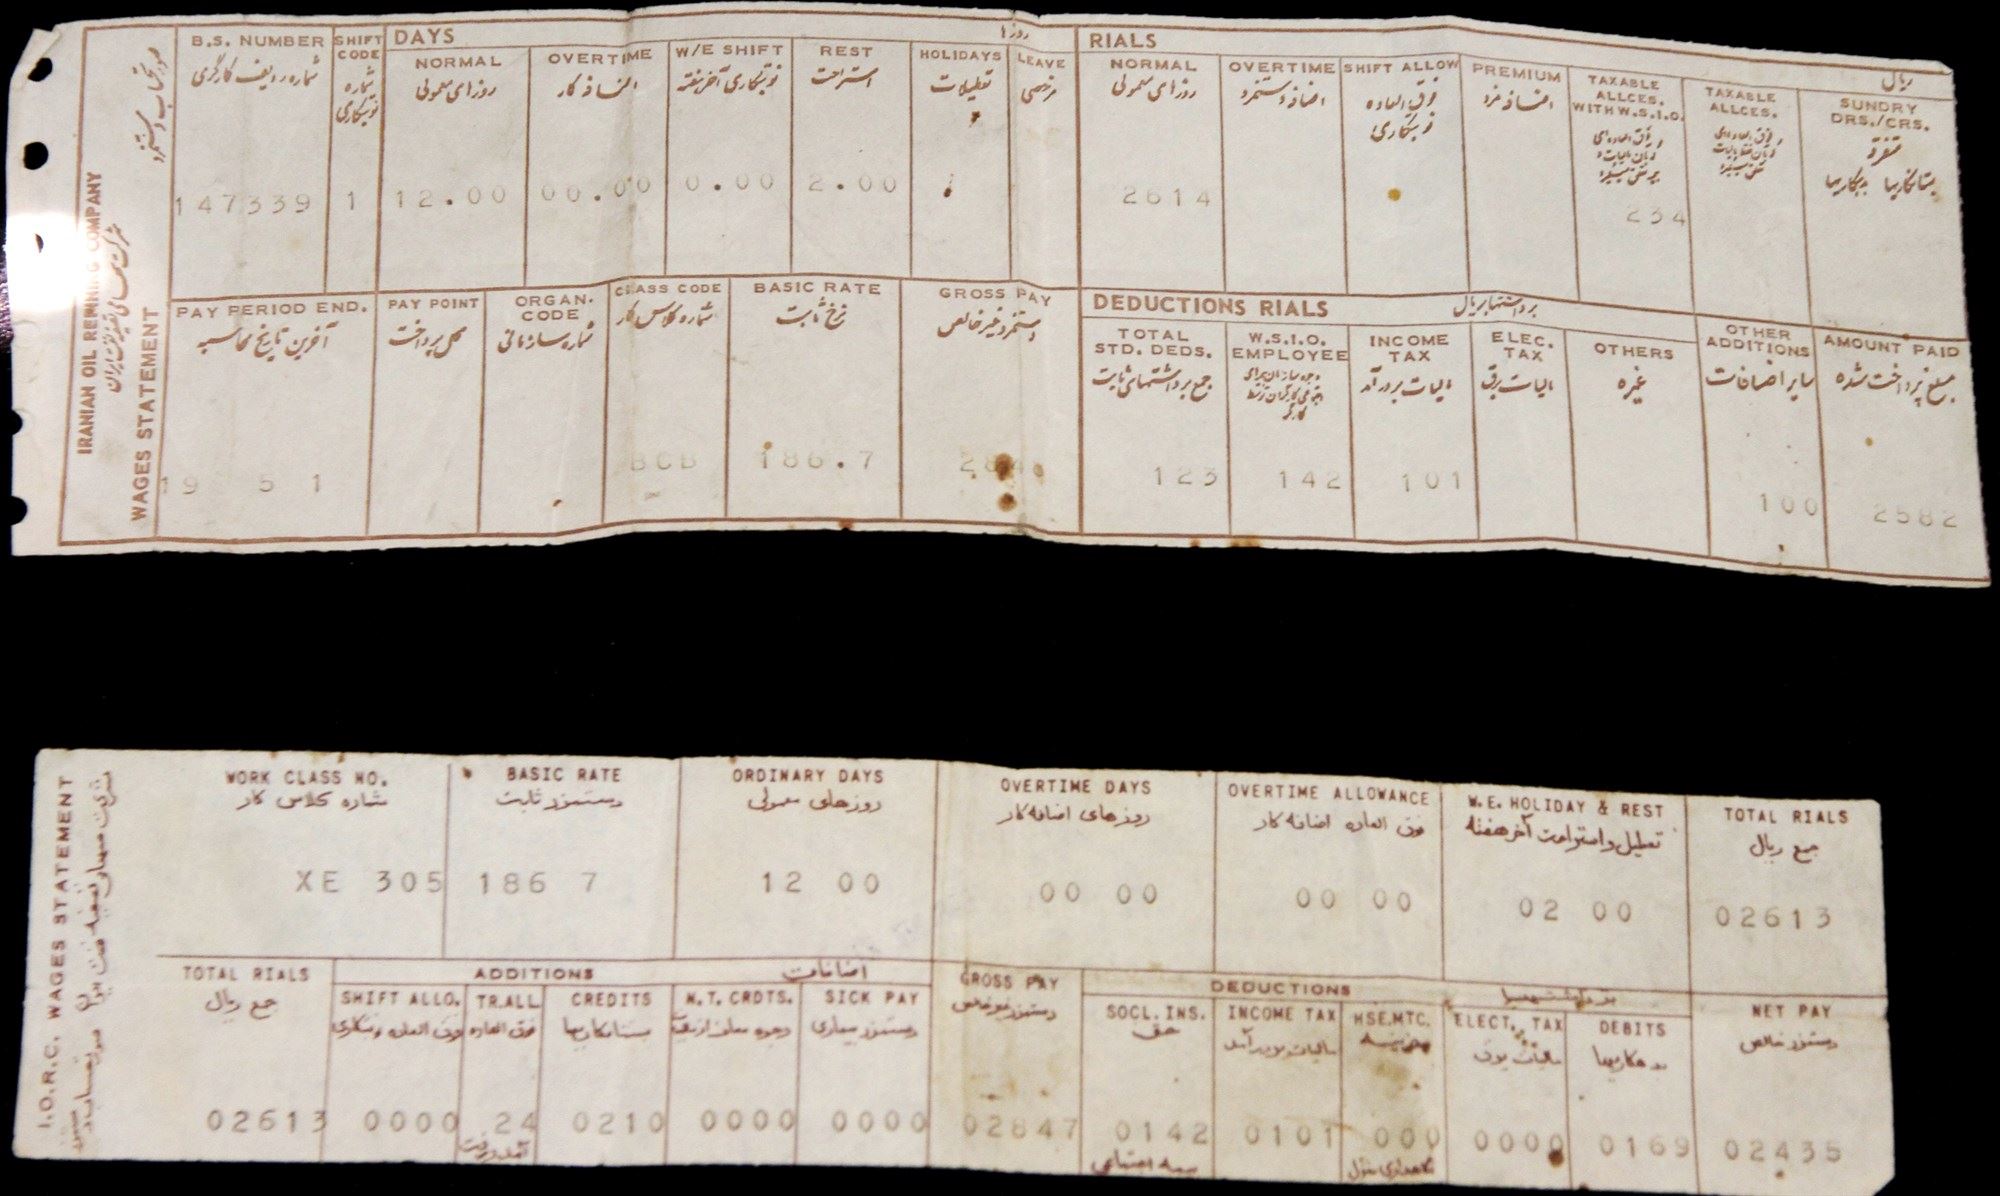 IRANIAN OIL REFINING COMPANY
شرکت سهامی تصفیه نفت ایران
WAGES STATEMENT
صورتحساب دستمزد
B.S. NUMBER
شماره ردیف کارگری
147339
SHIFT CODE
شماره نوبتکاری
1
DAYS
روزها
NORMAL
روزهای معمولی
12.00
OVERTIME
اضافه کار
00.00
W/E SHIFT
نوبتکاری آخر هفته
0.00
REST
استراحت
2.00
HOLIDAYS
تعطیلات
LEAVE
مرخصی
RIALS
ریال
NORMAL
روزهای معمولی
2614
OVERTIME
اضافه دستمزد
SHIFT ALLOW
فوق العاده نوبتکاری
PREMIUM
اضافه مزد
TAXABLE ALLCES. WITH W.S.I.O.
234
TAXABLE ALLCES.
SUNDRY DRS./CRS.
متفرقه
بستانکاریها بدهکاریها
PAY PERIOD END.
آخرین تاریخ محاسبه
19 5 1
PAY POINT
محل پرداخت
ORGAN. CODE
شماره سازمانی
CLASS CODE
شماره کلاس کار
BCB
BASIC RATE
نرخ ثابت
186.7
GROSS PAY
دستمزد غیر خالص
DEDUCTIONS RIALS
برداشتها بریال
TOTAL STD. DEDS.
جمع برداشتهای ثابت
123
W.S.I.O. EMPLOYEE
142
INCOME TAX
مالیات بر درآمد
101
ELEC. TAX
مالیات برق
OTHERS
غیره
OTHER ADDITIONS
سایر اضافات
100
AMOUNT PAID
مبلغ پرداخت شده
2582
I.O.R.C. WAGES STATEMENT
شرکت سهامی تصفیه نفت ایران صورتحساب دستمزد
WORK CLASS NO.
شماره کلاس کار
XE 305
BASIC RATE
دستمزد ثابت
186 7
ORDINARY DAYS
روزهای معمولی
12 00
OVERTIME DAYS
روزهای اضافه کار
00 00
OVERTIME ALLOWANCE
فوق العاده اضافه کار
00 00
W.E. HOLIDAY & REST
تعطیل و استراحت آخر هفته
02 00
TOTAL RIALS
جمع ریال
02613
TOTAL RIALS
جمع ریال
02613
ADDITIONS
اضافات
SHIFT ALLO.
فوق العاده نوبتکاری
0000
TR.ALL
فوق العاده
24
آمد و رفت
CREDITS
بستانکاریها
0210
N.T. CRDTS.
0000
SICK PAY
دستمزد بیماری
0000
GROSS PAY
دستمزد غیر خالص
02847
DEDUCTIONS
برداشتها
SOCL. INS.
حق
0142
بیمه اجتماعی
INCOME TAX
مالیات بر درآمد
0101
HSE.MTC.
هزینه
000
نگهداری منزل
ELECT. TAX
مالیات برق
0000
DEBITS
بدهکاریها
0169
NET PAY
دستمزد خالص
02435